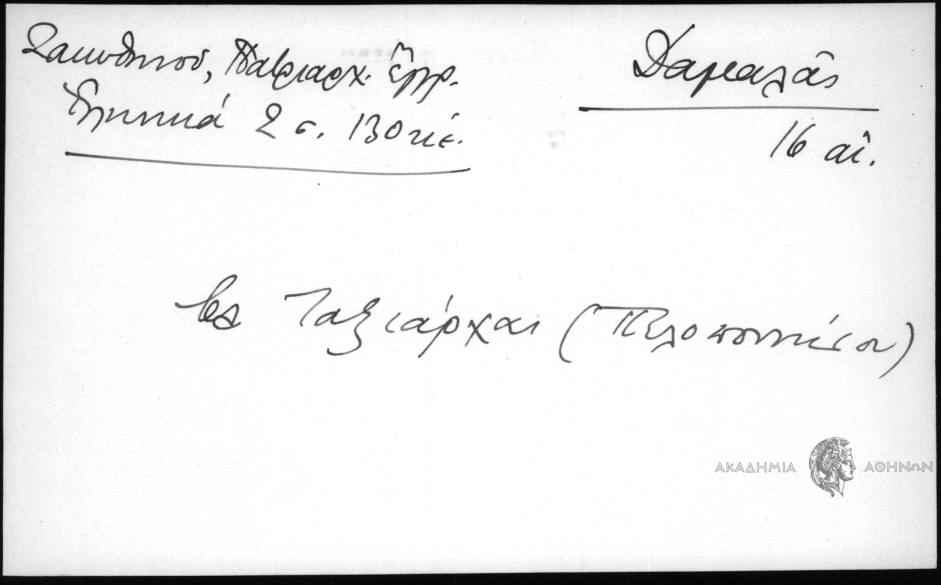 Ζακυθηνοῦ, Πατριαρχ. Ἔγγρ.
Ἑλληνικά 2 σ. 130 κἑ.
Δαμαλᾶς
16 αἰ.
βλ Ταξιάρχαι (Πελοποννήσου)
ΑΚΑΔΗΜΙΑ ΑΘΗΝΩΝ